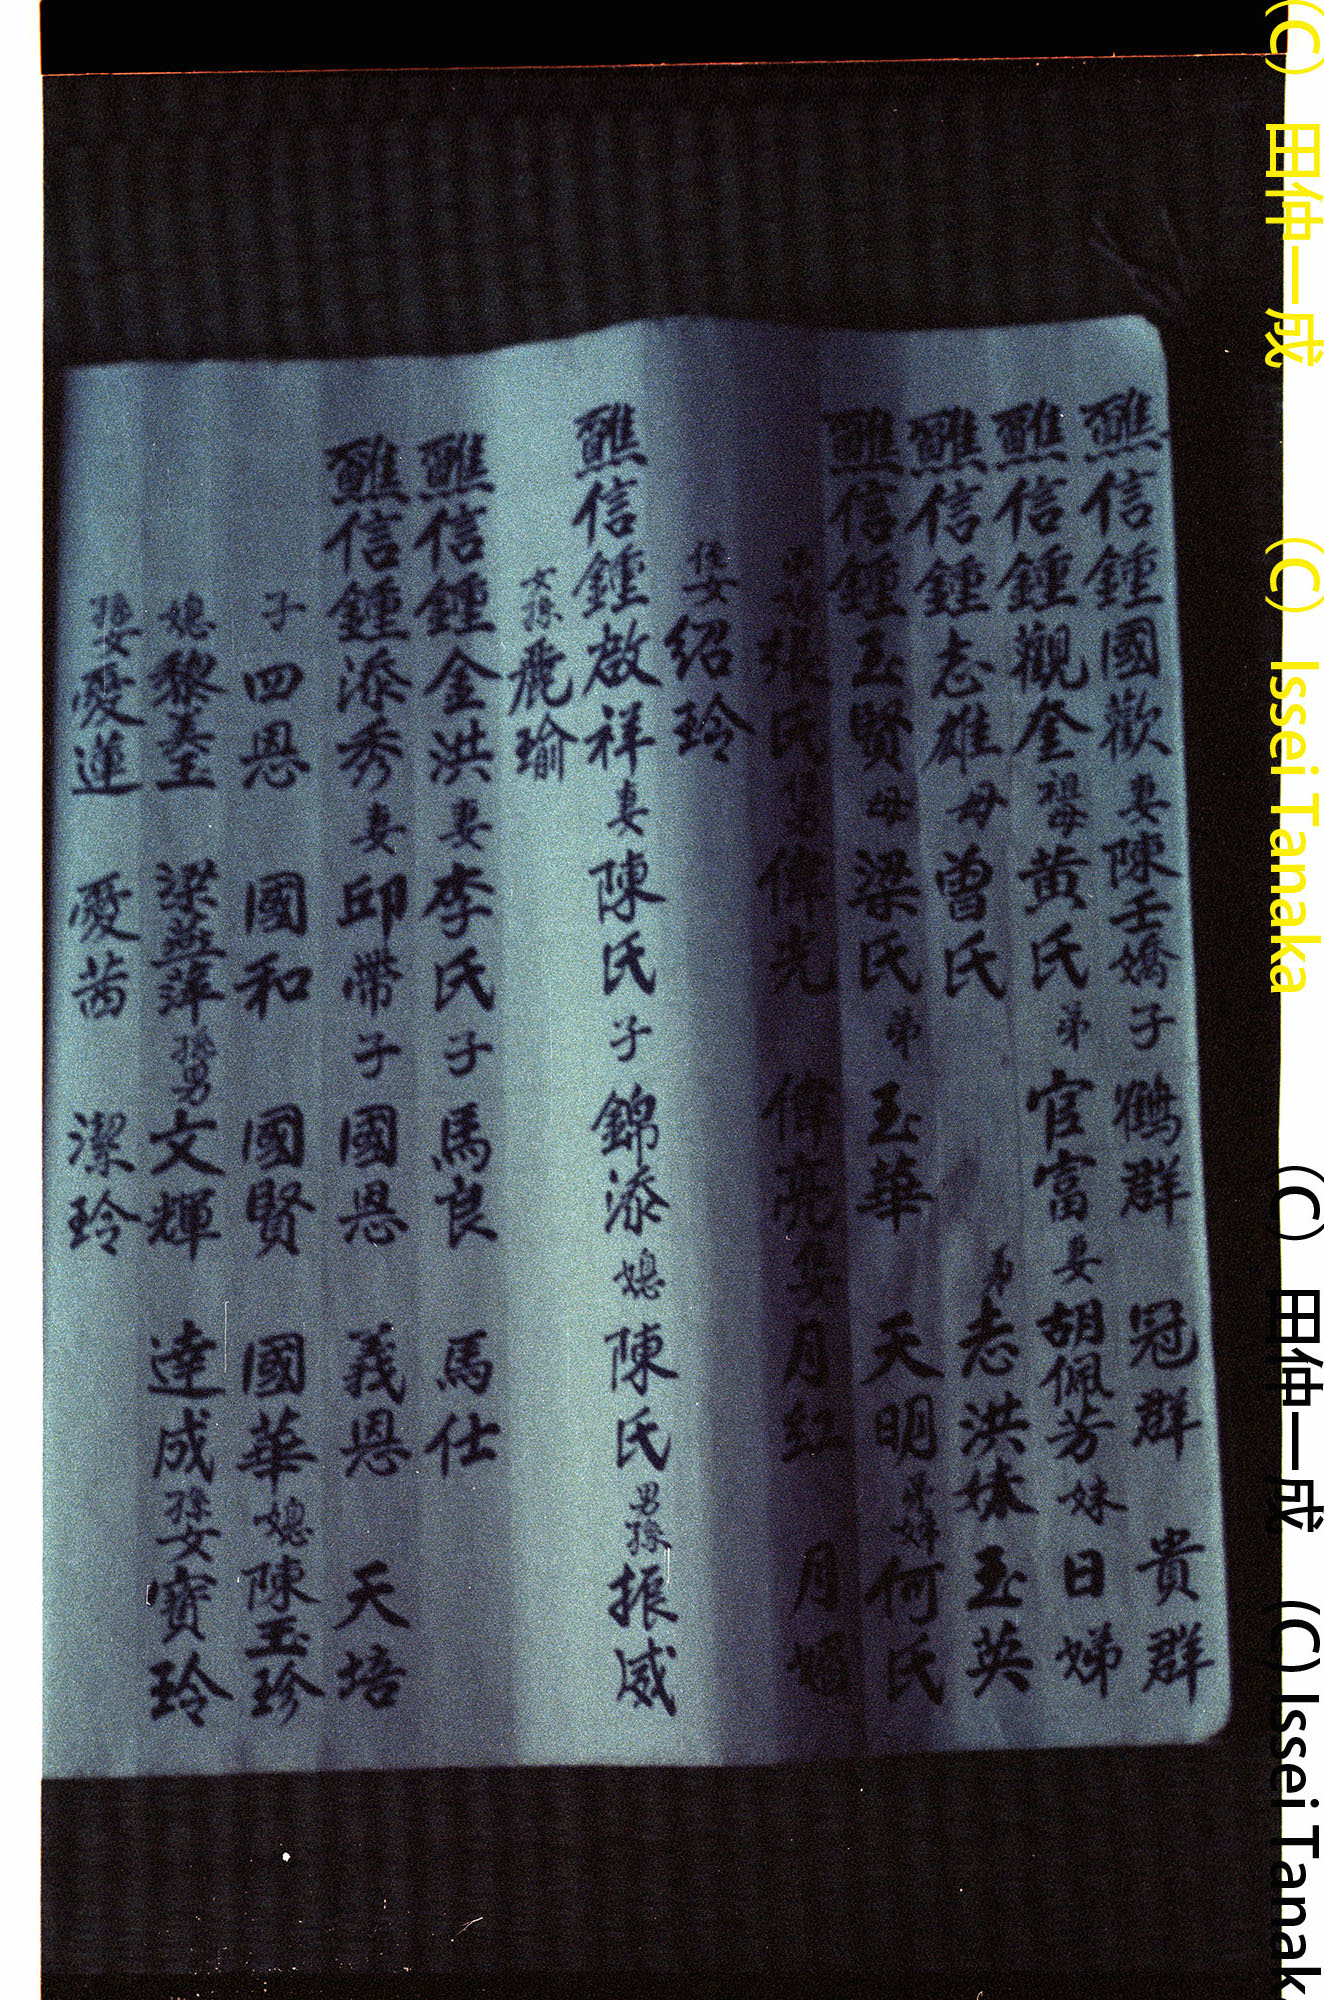 醮信鍾國歡妻陳壬嬌子鶴群 冠群 貴群
醮信鍾觀全祖母黄氏弟官富妻胡佩芳妹日娣
醮信鍾志雄母曾氏 弟志洪妹玉英
醮信鍾玉賢母梁氏弟玉華 天明弟婦何氏
張氏侄男偉光 偉亮侄女月紅 月嫦
侄女紹玲
醮信鍾啟祥妻陳氏子錦添媳陳氏男孫振威
女孫麗瑜
醮信鍾金洪妻李氏子馬良 馬仕
醮信鍾添秀妻邱帶子國恩 義恩 天培
子四恩 國和 國賢 國華媳陳玉珍
媳黎 梁 萍孫男文輝 達成孫女寶玲
孫女愛蓮 愛茜 潔玲
(C) 田仲一成 (C) Issei Tanaka (C) 田仲一成 (C) Issei Tanak